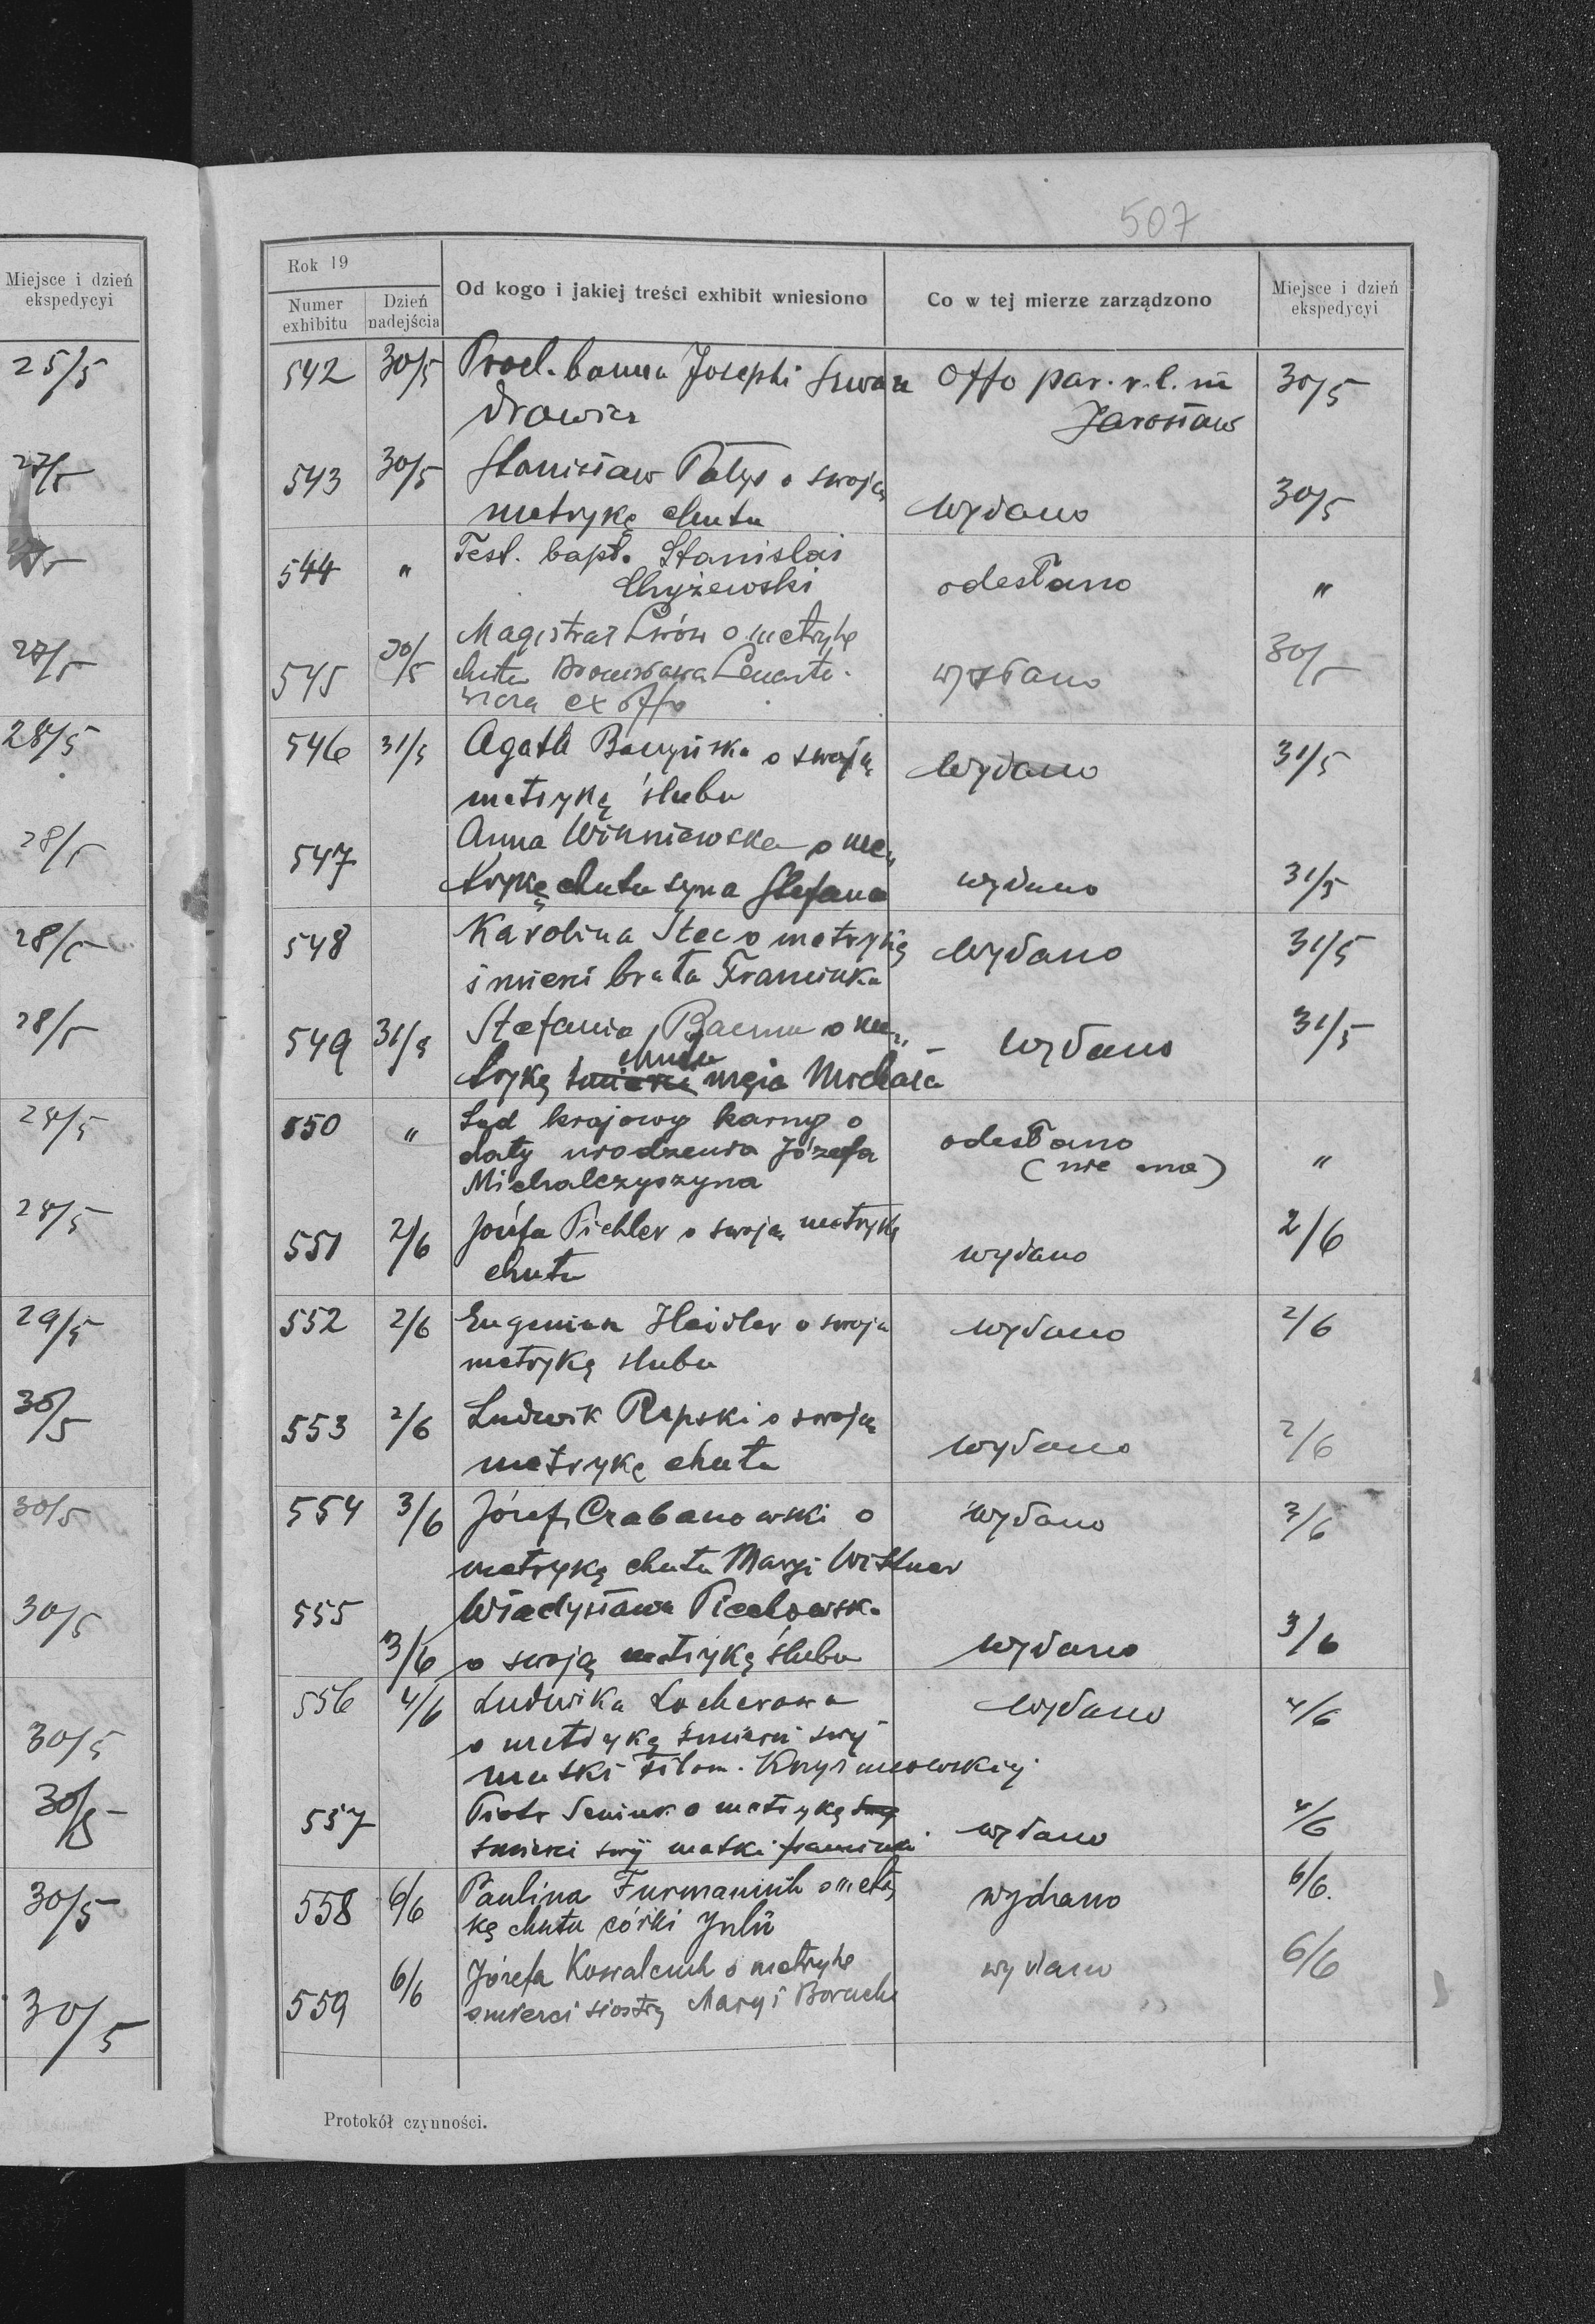 Miejsce i dzień
ekspedycyi
25/5
27/5
27/5
28/5
28/5
28/5
28/5
28/5
28/5
29/5
30/5
30/5
30/5
30/5
30/5
30/5
30/5
507
Rok 19
Numer
exhibitu
Dzień
nadejścia
Od kogo i jakiej treści exhibit wniesiono
Co w tej mierze zarządzono
Miejsce i dzień
ekspedycyi
542 30/5 Procl. banna Josephi Offo par. r. l. in 30/5
Jarosław
543 30/5 Stanisław Patys o swoją
metrykę chrztu wydano 30/5
544 " Test. bapt. Stanislai
Chyżewski odesłano "
545 30/5 Magistrat Lwów o metrykę
chrztu Bronisława Lenarto-
wicza ex offo wysłano 30/5
546 31/5 Agata o swoją wydano 31/5
metrykę ślubu
547 Anna Winniewska o me„
trykę chrztu syna Stefana wydano 31/5
548 Karolina Stec o metrykę wydano 31/5
śmierci brata Franciszka
549 31/5 Stefania o me„ wydano 31/5
trykę śmierci chrztu męża Michała
550 " Sąd krajowy karny o
daty urodzenia Józefa odesłano
Michalczyszyna (nie ma) "
551 2/6 Józefa Pichler o swoją metrykę
chrztu wydano 2/6
552 2/6 Eugeniusz Heidler o swoją wydano 2/6
metrykę ślubu
553 2/6 Ludwik Repski o swoją
metrykę chrztu wydano 2/6
554 3/6 Józef Czabanowski o wydano 3/6
metrykę chrztu Maryi Wittner
555 Władysława Piechowska
3/6 o swoją metrykę ślubu wydano 3/6
556 4/6 Ludwika Locherowa wydano 4/6
o metrykę śmierci swej
matki Filom.
557 Piotr Seniuk o metrykę
śmierci swej matki Franciszki wydano 4/6
558 6/6 Paulina Furmaniuk o metry wydano 6/6.
kę chrztu córki Julii
559 6/6 Józefa Kowalczuk o metrykę wydano 6/6
śmierci siostry Maryi
Protokół czynności.